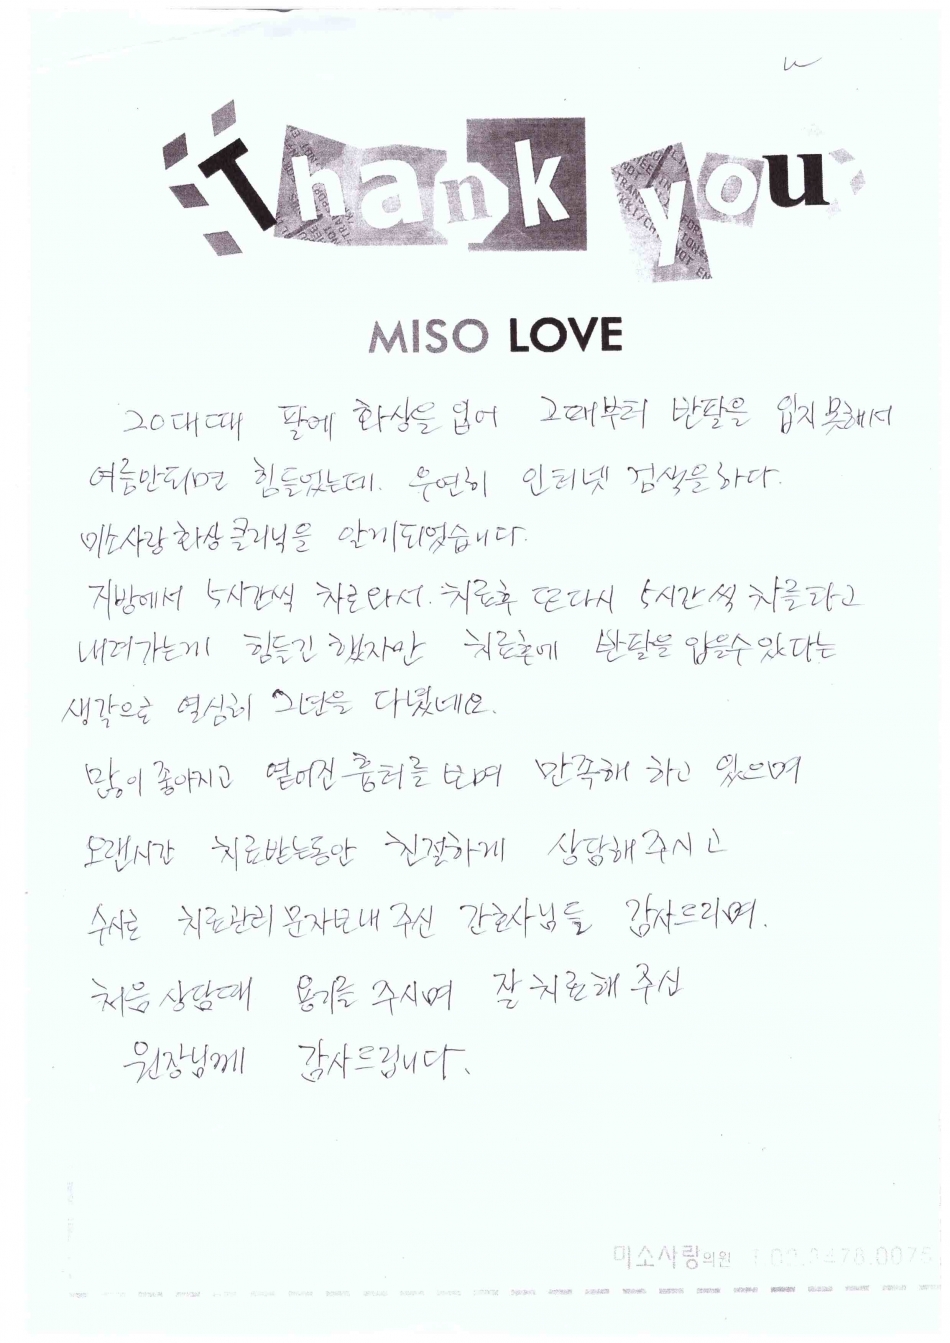 Thank you
MISO LOVE
20대때 팔에 화상을 입어 그때부터 반팔을 입지못해서
여름만되면 힘들었는데. 우연히 인터넷 검색을하다.
미소사랑화상클리닉을 알게되었습니다.
지방에서 5시간씩 차로와서. 치료후 또다시 5시간씩 차를타고
내려가는게 힘들긴 했지만 치료후에 반팔을 입을수있다는
생각으로 열심히 2년을 다녔네요.
많이 좋아지고 옅어진 흉터를 보며 만족해 하고 있으며
오랜시간 치료받는동안 친절하게 상담해주시고
수시로 치료관리 문자보내 주신 간호사님들 감사드리며.
처음 상담때 용기를 주시며 잘 치료해 주신
원장님께 감사드립니다.
미소사랑의원 T 02.3478.0075